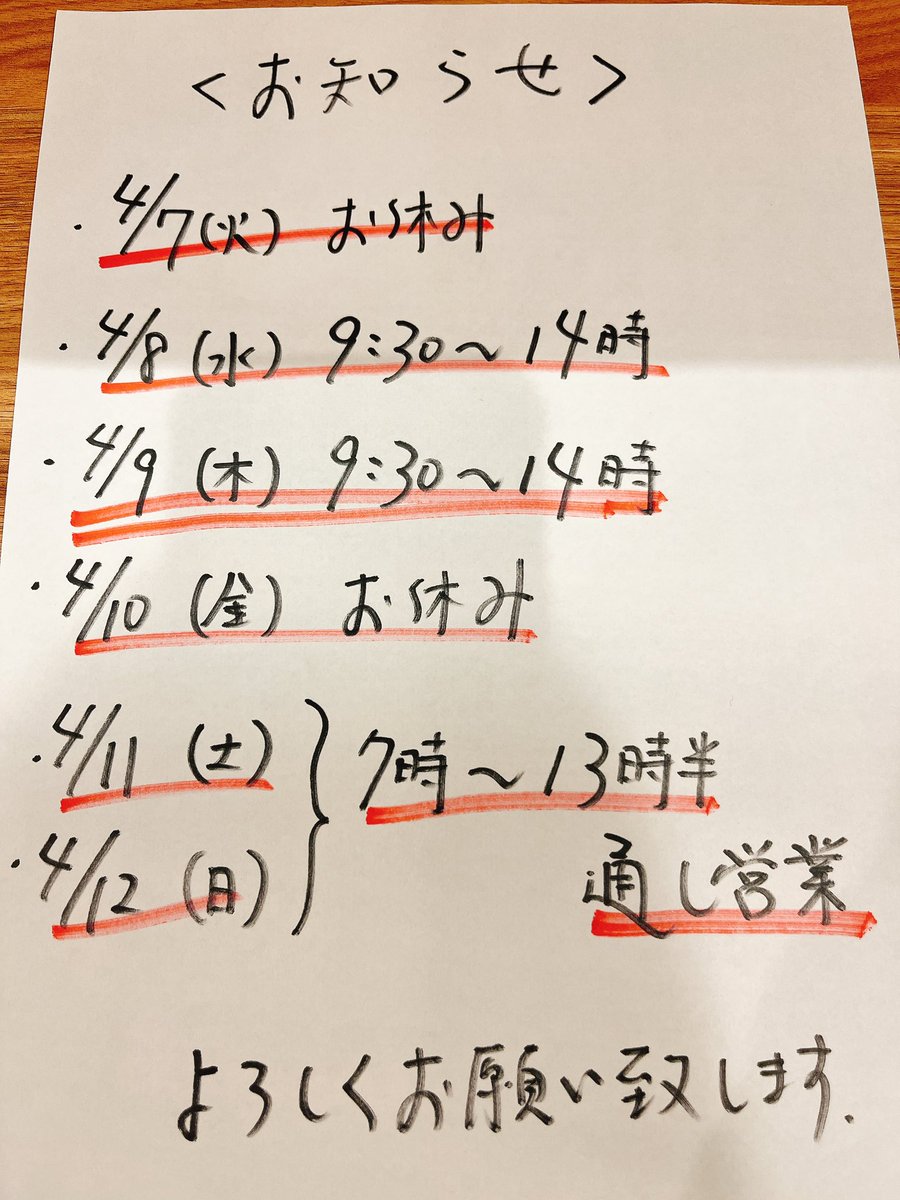 <お知らせ>
・4/7(火) お休み
・4/8(水) 9:30〜14時
・4/9(木) 9:30〜14時
・4/10(金) お休み
・4/11(土)
・4/12(日) } 7時〜13時半
通し営業
よろしくお願い致します.